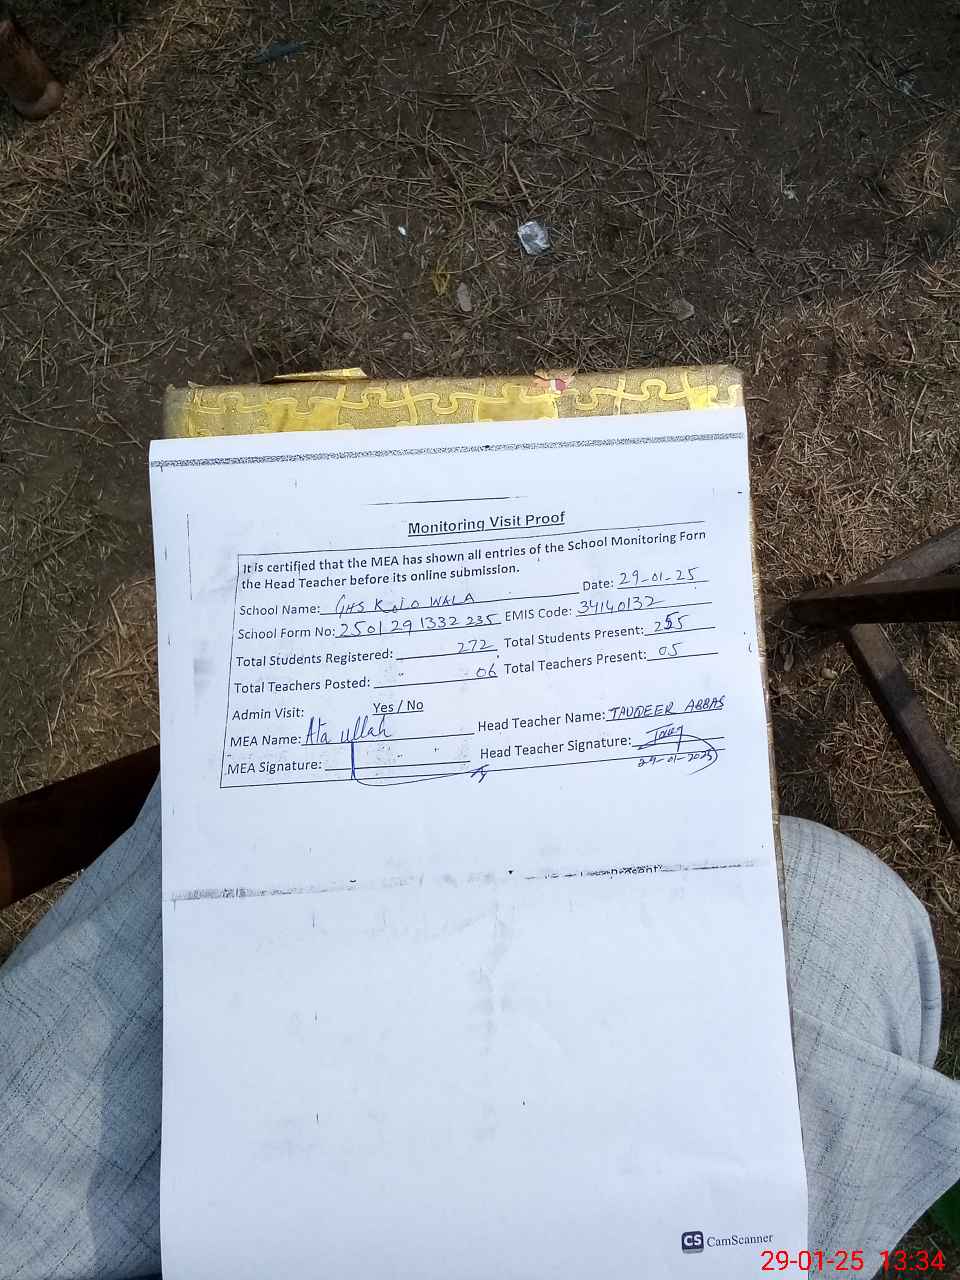 Monitoring Visit Proof
It is certified that the MEA has shown all entries of the School Monitoring Form
the Head Teacher before its online submission.
School Name: GHS KOLO WALA Date: 29-01-25
School Form No: 2501291332235 EMIS Code: 34140132
Total Students Registered: 272 Total Students Present: 255
Total Teachers Posted: 06 Total Teachers Present: 05
Admin Visit: Yes / No
MEA Name: Ata ullah Head Teacher Name: TAUQEER ABBAS
MEA Signature: Head Teacher Signature:
29-01-2025
CS CamScanner
29-01-25 13:34